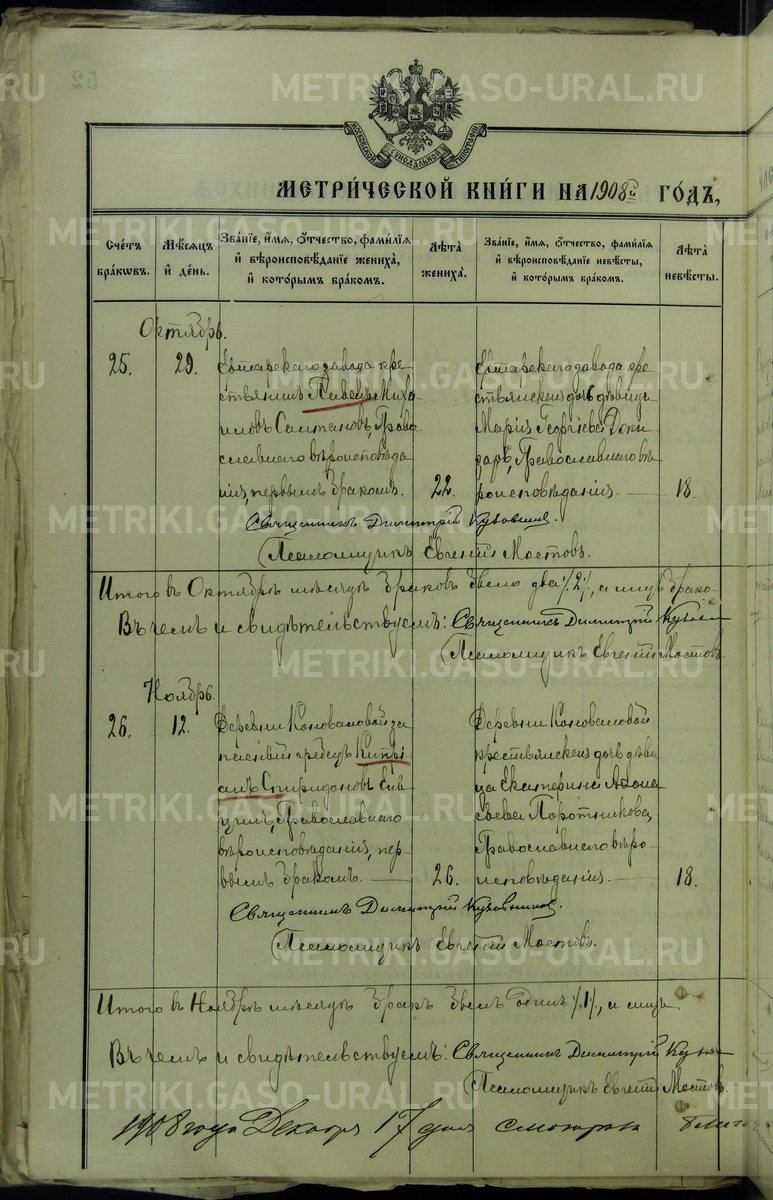 МОСКОВСКОЙ СѴНОДАЛЬНОЙ ТИПОГРАФІИ
МЕТРИ́ЧЕСКОЙ КНИ́ГИ НА 1908й ГО́ДЪ,
Сче́тъ бра́кѡвъ.
Мѣ́сяцъ и҆ де́нь.
Зва́нїе, и҆́мѧ, ѻ҆́тчество, фами́лїѧ и҆ вѣроисповѣ́данїе жениха̀, и҆ кото́рымъ бра́комъ.
Лѣ́та жениха̀.
Зва́нїе, и҆́мѧ, ѻ҆́тчество, фами́лїѧ и҆ вѣроисповѣ́данїе невѣ́сты, и҆ кото́рымъ бра́комъ.
Лѣ́та невѣ́сты.
Октябрь.
25.
29.
завода кре
стьянинъ Павелъ Миха
иловъ Право
славнаго вѣроисповѣда
нія, первымъ бракомъ.
22.
завода кре
стьянская дочь дѣвица
Марія Георгіева
Православнаго вѣ
роисповѣданія
18.
Священникъ Димитрій
Псаломщикъ Евгеній Мостовъ.
Итого въ Октябрѣ мѣсяцѣ браковъ было два /2/, а лицъ
Въ чемъ и свидѣтельствуемъ: Священникъ Димитрій
Псаломщикъ Евгеній Мостовъ.
Ноябрь.
26.
12.
Деревни Коноваловой за
пасный Кипрі
анъ Спиридоновъ
Православнаго
вѣроисповѣданія, пер
вымъ бракомъ.
26.
Деревни Коноваловой
крестьянская дочь дѣви
ца Екатерина Афона
сьева Поротникова,
Православнаго вѣро
исповѣданія
18.
Священникъ Димитрій
Псаломщикъ Евгеній Мостовъ.
Итого въ Ноябрѣ мѣсяцѣ бракъ былъ одинъ /1/, а лицъ
Въ чемъ и свидѣтельствуемъ: Священникъ Димитрій
Псаломщикъ Евгеній Мостовъ
1908 года Декабря 17 дня
METRIKI.GASO-URAL.RU